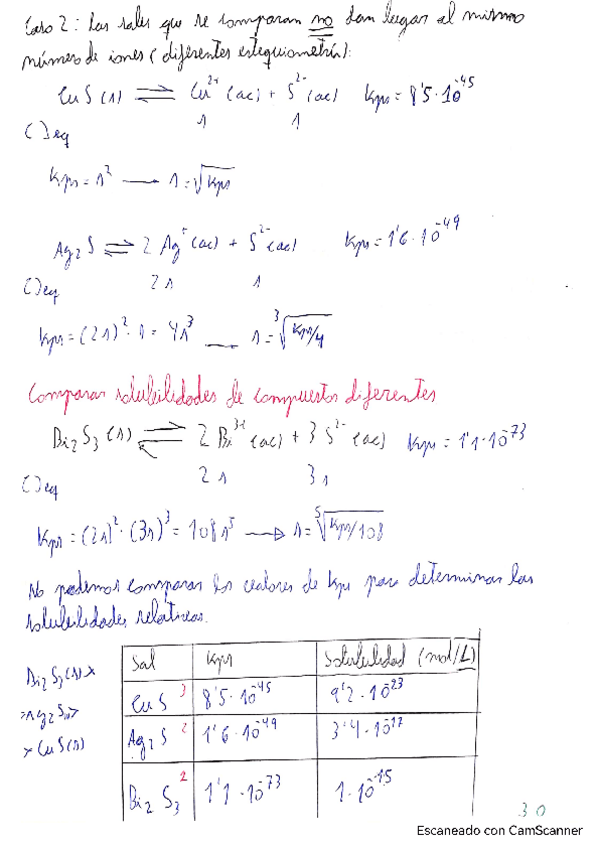 Caso 2: Las sales que se comparan no dan lugar al mismo
número de iones (diferentes estequiometría):
CuS (s) ⇌ Cu²⁺ (ac) + S²⁻ (ac) Kps = 8'5·10⁻⁴⁵
s s
[ ]eq
Kps = s² → s = √Kps
Ag₂S ⇌ 2 Ag⁺ (ac) + S²⁻ (ac) Kps = 1'6·10⁻⁴⁹
2s s
[ ]eq
Kps = (2s)²·s = 4s³ → s = ³√Kps/4
Comparar solubilidades de compuestos diferentes
Bi₂S₃ (s) ⇌ 2 Bi³⁺ (ac) + 3 S²⁻ (ac) Kps = 1'1·10⁻⁷³
2s 3s
[ ]eq
Kps = (2s)²·(3s)³ = 108s⁵ → s = ⁵√Kps/108
No podemos comparar los valores de Kps para determinar las
solubilidades relativas.
Bi₂S₃(s) >
> Ag₂S(s) >
> CuS(s)
Sal Kps Solubilidad (mol/L)
CuS 3 8'5·10⁻⁴⁵ 9'2·10⁻²³
Ag₂S 2 1'6·10⁻⁴⁹ 3'4·10⁻¹⁷
Bi₂S₃ 2 1'1·10⁻⁷³ 1·10⁻¹⁵
30
Escaneado con CamScanner